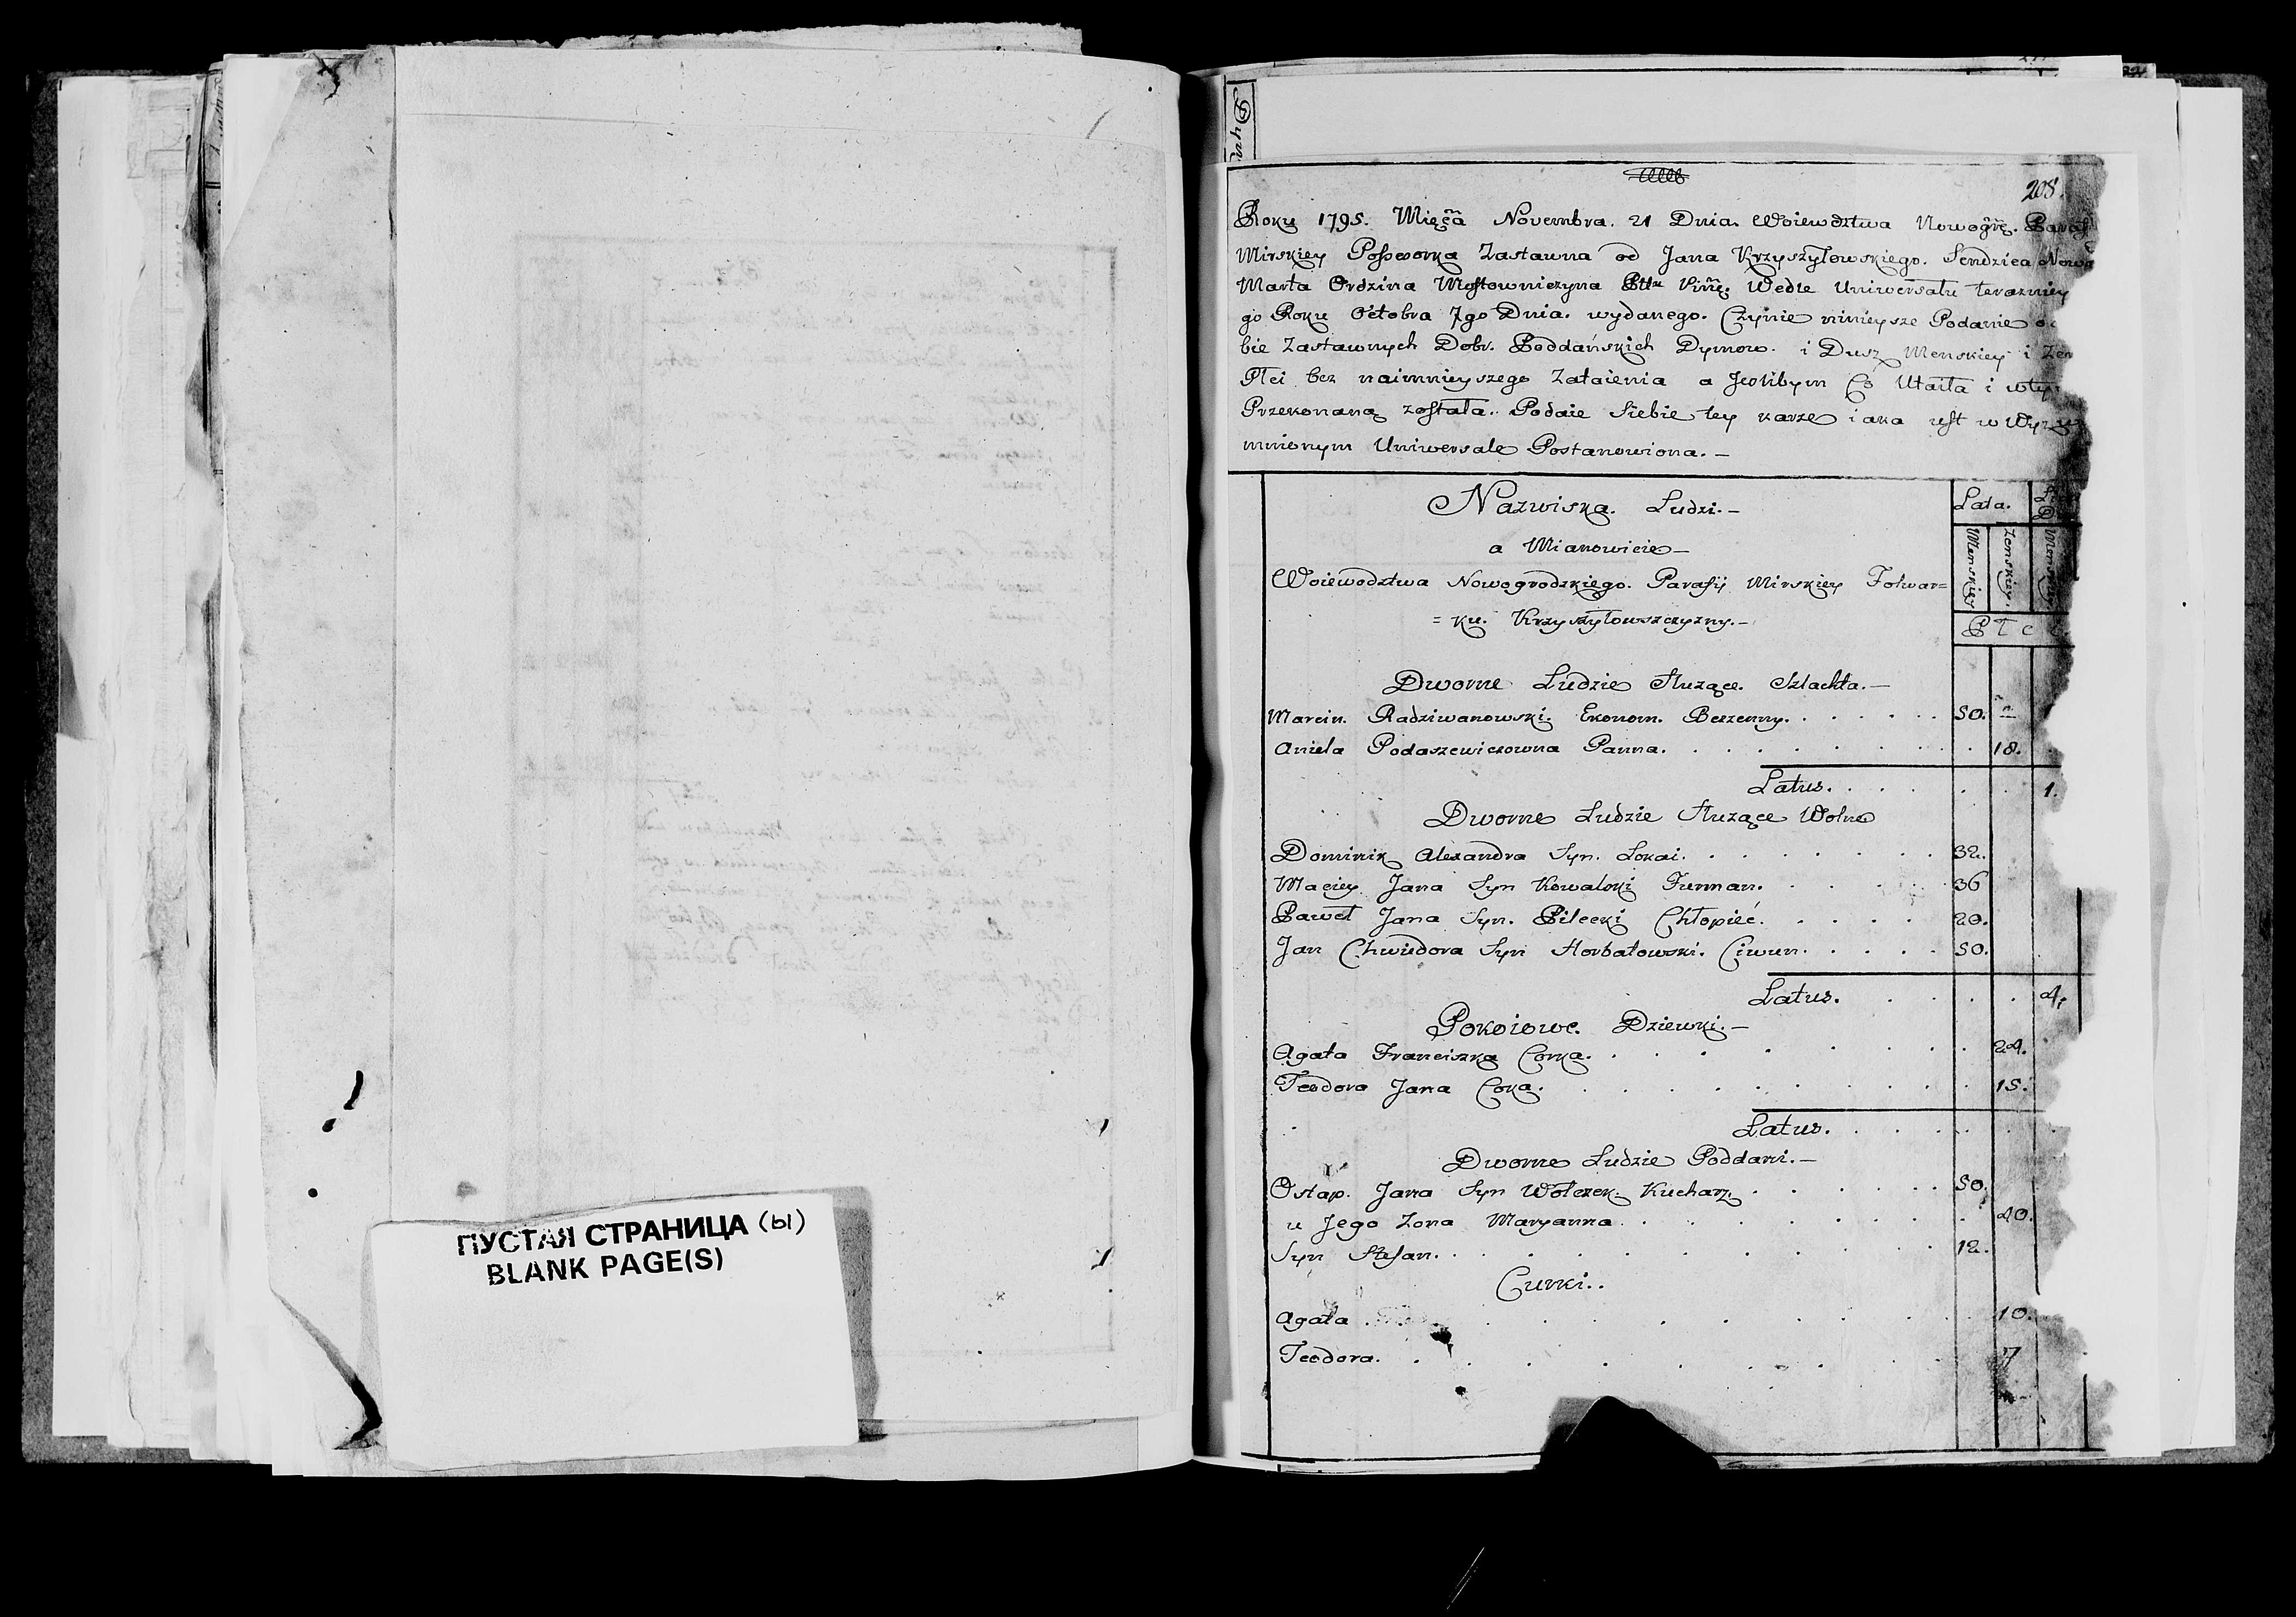 ПУСТАЯ СТРАНИЦА (ы)
BLANK PAGE(S)
208.
Roku 1795. Mięca Novembra. 21 Dnia. Woiewodztwa Nowogrę.
Mirskiey Possesorka Zastawna od Jana Krzyszyłowskiego. Sendzica
Marta Ordzina Mostowniczyna Wedle Uniwersału terazniey
go Roku Octobra 7go Dnia. wydanego. Czynie ninieysze Podanie
bie Zastawnych Dobr. Poddańskich Dymow. i Dusz Menskiey i
Płci bez naimnieyszego Zataienia a Jeslibym Co Utaiła i
Przekonaną została. Podaie Siebie tey karze iaka jest w
mnionym Uniwersale Postanowiona. —
Nazwiska. Ludzi. —
a Mianowicie —
Woiewodztwa Nowogrodzkiego. Parafij Mirskiey Folwar=
= ku. Krzyszyłowszczyzny. —
Lata.
Menskiey
Zenskiey.
Menskiey
Płci
Dworne Ludzie Służące. Szlachta. —
Marcin. Radziwanowski. Ekonom. Bezzenny. 50.
Aniela Podaszewiczowna Panna. 18.
Latus. 1.
Dworne Ludzie Służące Wolne
Dominik Alexandra Syn. Lokai. 32.
Maciey Jana Syn Kowalski Furman. 36
Paweł Jana Syn. Pilecki Chłopiec. 20.
Jan Chwiedora Syn Horbatowski. Ciwun. 50.
Latus. 4.
Pokoiowe. Dziewki. —
Agata Franciszka Corka. 24.
Teodora Jana Coka. 15.
Latus.
Dworne Ludzie Poddani. —
Ostap. Jana Syn Wołczek. Kucharz. 50.
u Jego Zona Maryanna. 40.
Syn Stefan. 12.
Curki..
Agata 10.
Teodora. 7